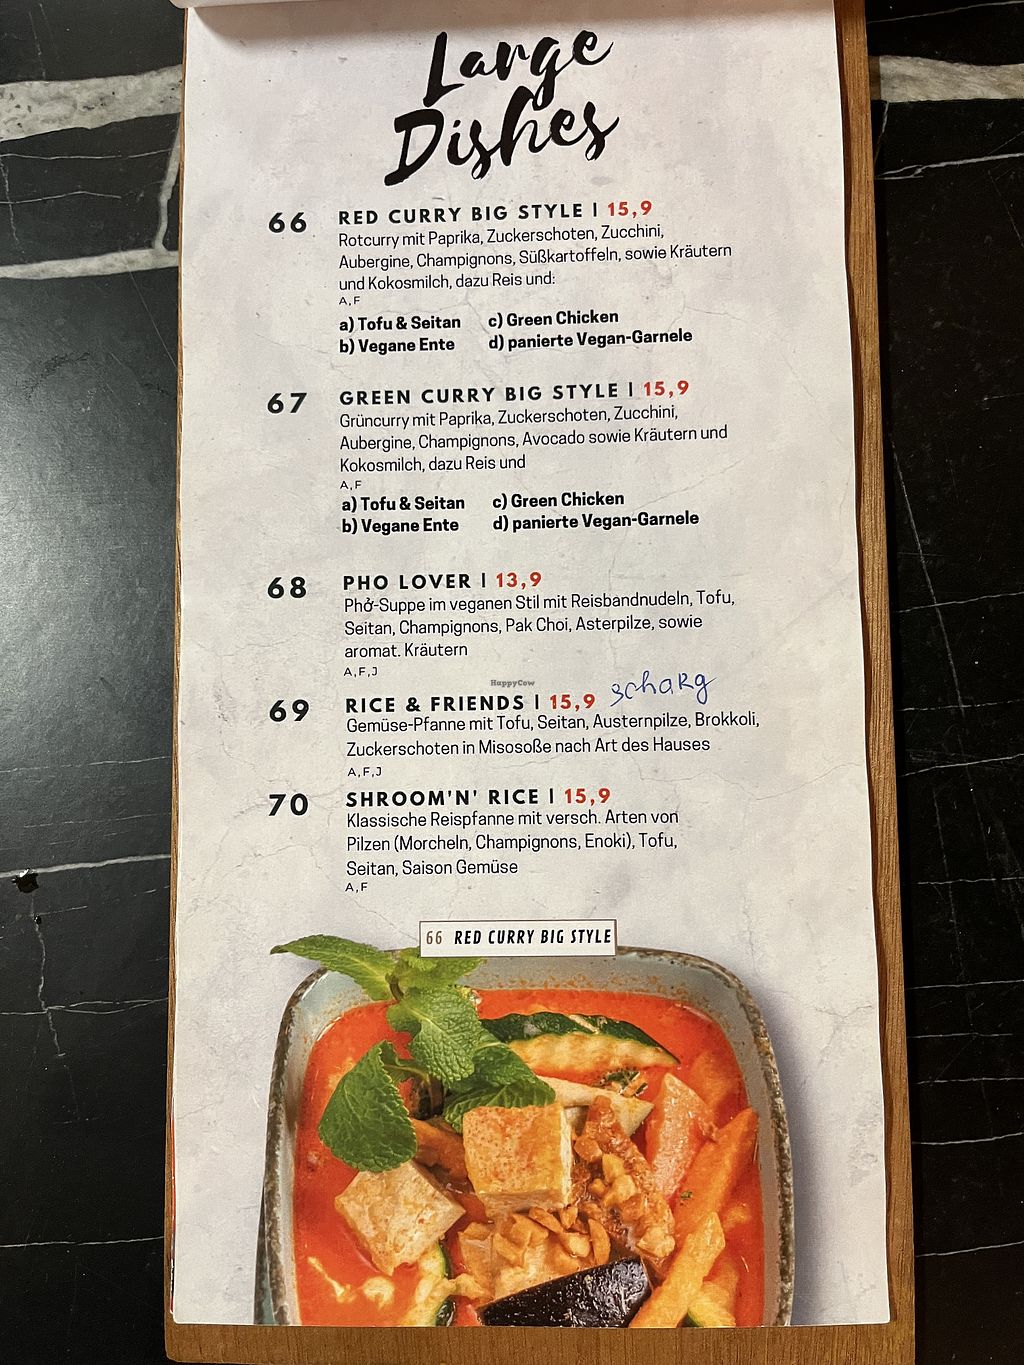 Large
Dishes
66 RED CURRY BIG STYLE | 15,9
Rotcurry mit Paprika, Zuckerschoten, Zucchini,
Aubergine, Champignons, Süßkartoffeln, sowie Kräutern
und Kokosmilch, dazu Reis und:
A,F
a) Tofu & Seitan c) Green Chicken
b) Vegane Ente d) panierte Vegan-Garnele
67 GREEN CURRY BIG STYLE | 15,9
Grüncurry mit Paprika, Zuckerschoten, Zucchini,
Aubergine, Champignons, Avocado sowie Kräutern und
Kokosmilch, dazu Reis und
A,F
a) Tofu & Seitan c) Green Chicken
b) Vegane Ente d) panierte Vegan-Garnele
68 PHO LOVER | 13,9
Phở-Suppe im veganen Stil mit Reisbandnudeln, Tofu,
Seitan, Champignons, Pak Choi, Asterpilze, sowie
aromat. Kräutern
A,F,J
HappyCow
69 RICE & FRIENDS | 15,9
Gemüse-Pfanne mit Tofu, Seitan, Austernpilze, Brokkoli,
Zuckerschoten in Misosoße nach Art des Hauses
A,F,J
70 SHROOM'N' RICE | 15,9
Klassische Reispfanne mit versch. Arten von
Pilzen (Morcheln, Champignons, Enoki), Tofu,
Seitan, Saison Gemüse
A,F
66 RED CURRY BIG STYLE